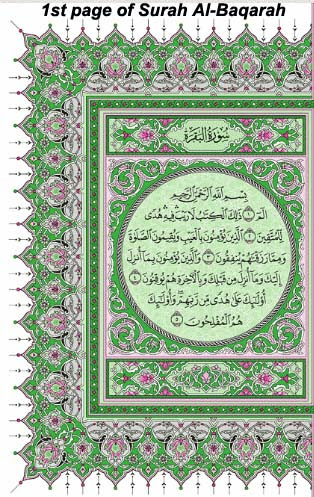 1st page of Surah Al-Baqarah
سُورَةُ البَقَرَةِ
بِسْمِ اللَّهِ الرَّحْمَٰنِ الرَّحِيمِ
الٓمٓ ۝١ ذَٰلِكَ الْكِتَٰبُ لَا رَيْبَ فِيهِ هُدًى
لِّلْمُتَّقِينَ ۝٢ الَّذِينَ يُؤْمِنُونَ بِالْغَيْبِ وَيُقِيمُونَ الصَّلَوٰةَ
وَمِمَّا رَزَقْنَٰهُمْ يُنفِقُونَ ۝٣ وَالَّذِينَ يُؤْمِنُونَ بِمَا أُنزِلَ
إِلَيْكَ وَمَا أُنزِلَ مِن قَبْلِكَ وَبِالْءَاخِرَةِ هُمْ يُوقِنُونَ ۝٤
أُولَٰئِكَ عَلَىٰ هُدًى مِّن رَّبِّهِمْ وَأُولَٰئِكَ
هُمُ الْمُفْلِحُونَ ۝٥